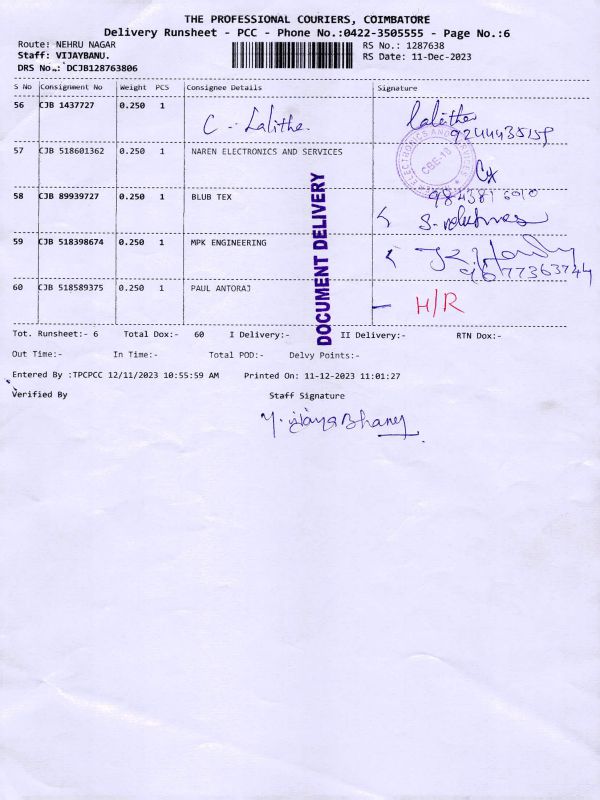 THE PROFESSIONAL COURIERS, COIMBATORE
Delivery Runsheet - PCC - Phone No.:0422-3505555 - Page No.:6
Route: NEHRU NAGAR
Staff: VIJAYBANU.
DRS No.: DCJB128763806
RS No.: 1287638
RS Date: 11-Dec-2023
S No Consignment No Weight PCS Consignee Details Signature
56 CJB 1437727 0.250 1 C. Lalitha. Lalitha
9244435159
57 CJB 518601362 0.250 1 NAREN ELECTRONICS AND SERVICES
ELECTRONICS AND SERVICES
CBE-13
58 CJB 89939727 0.250 1 BLUB TEX
59 CJB 518398674 0.250 1 MPK ENGINEERING
9677363744
60 CJB 518589375 0.250 1 PAUL ANTORAJ - H/R
DOCUMENT DELIVERY
Tot. Runsheet:- 6 Total Dox:- 60 I Delivery:- II Delivery:- RTN Dox:-
Out Time:- In Time:- Total POD:- Delvy Points:-
Entered By :TPCPCC 12/11/2023 10:55:59 AM Printed On: 11-12-2023 11:01:27
Verified By Staff Signature